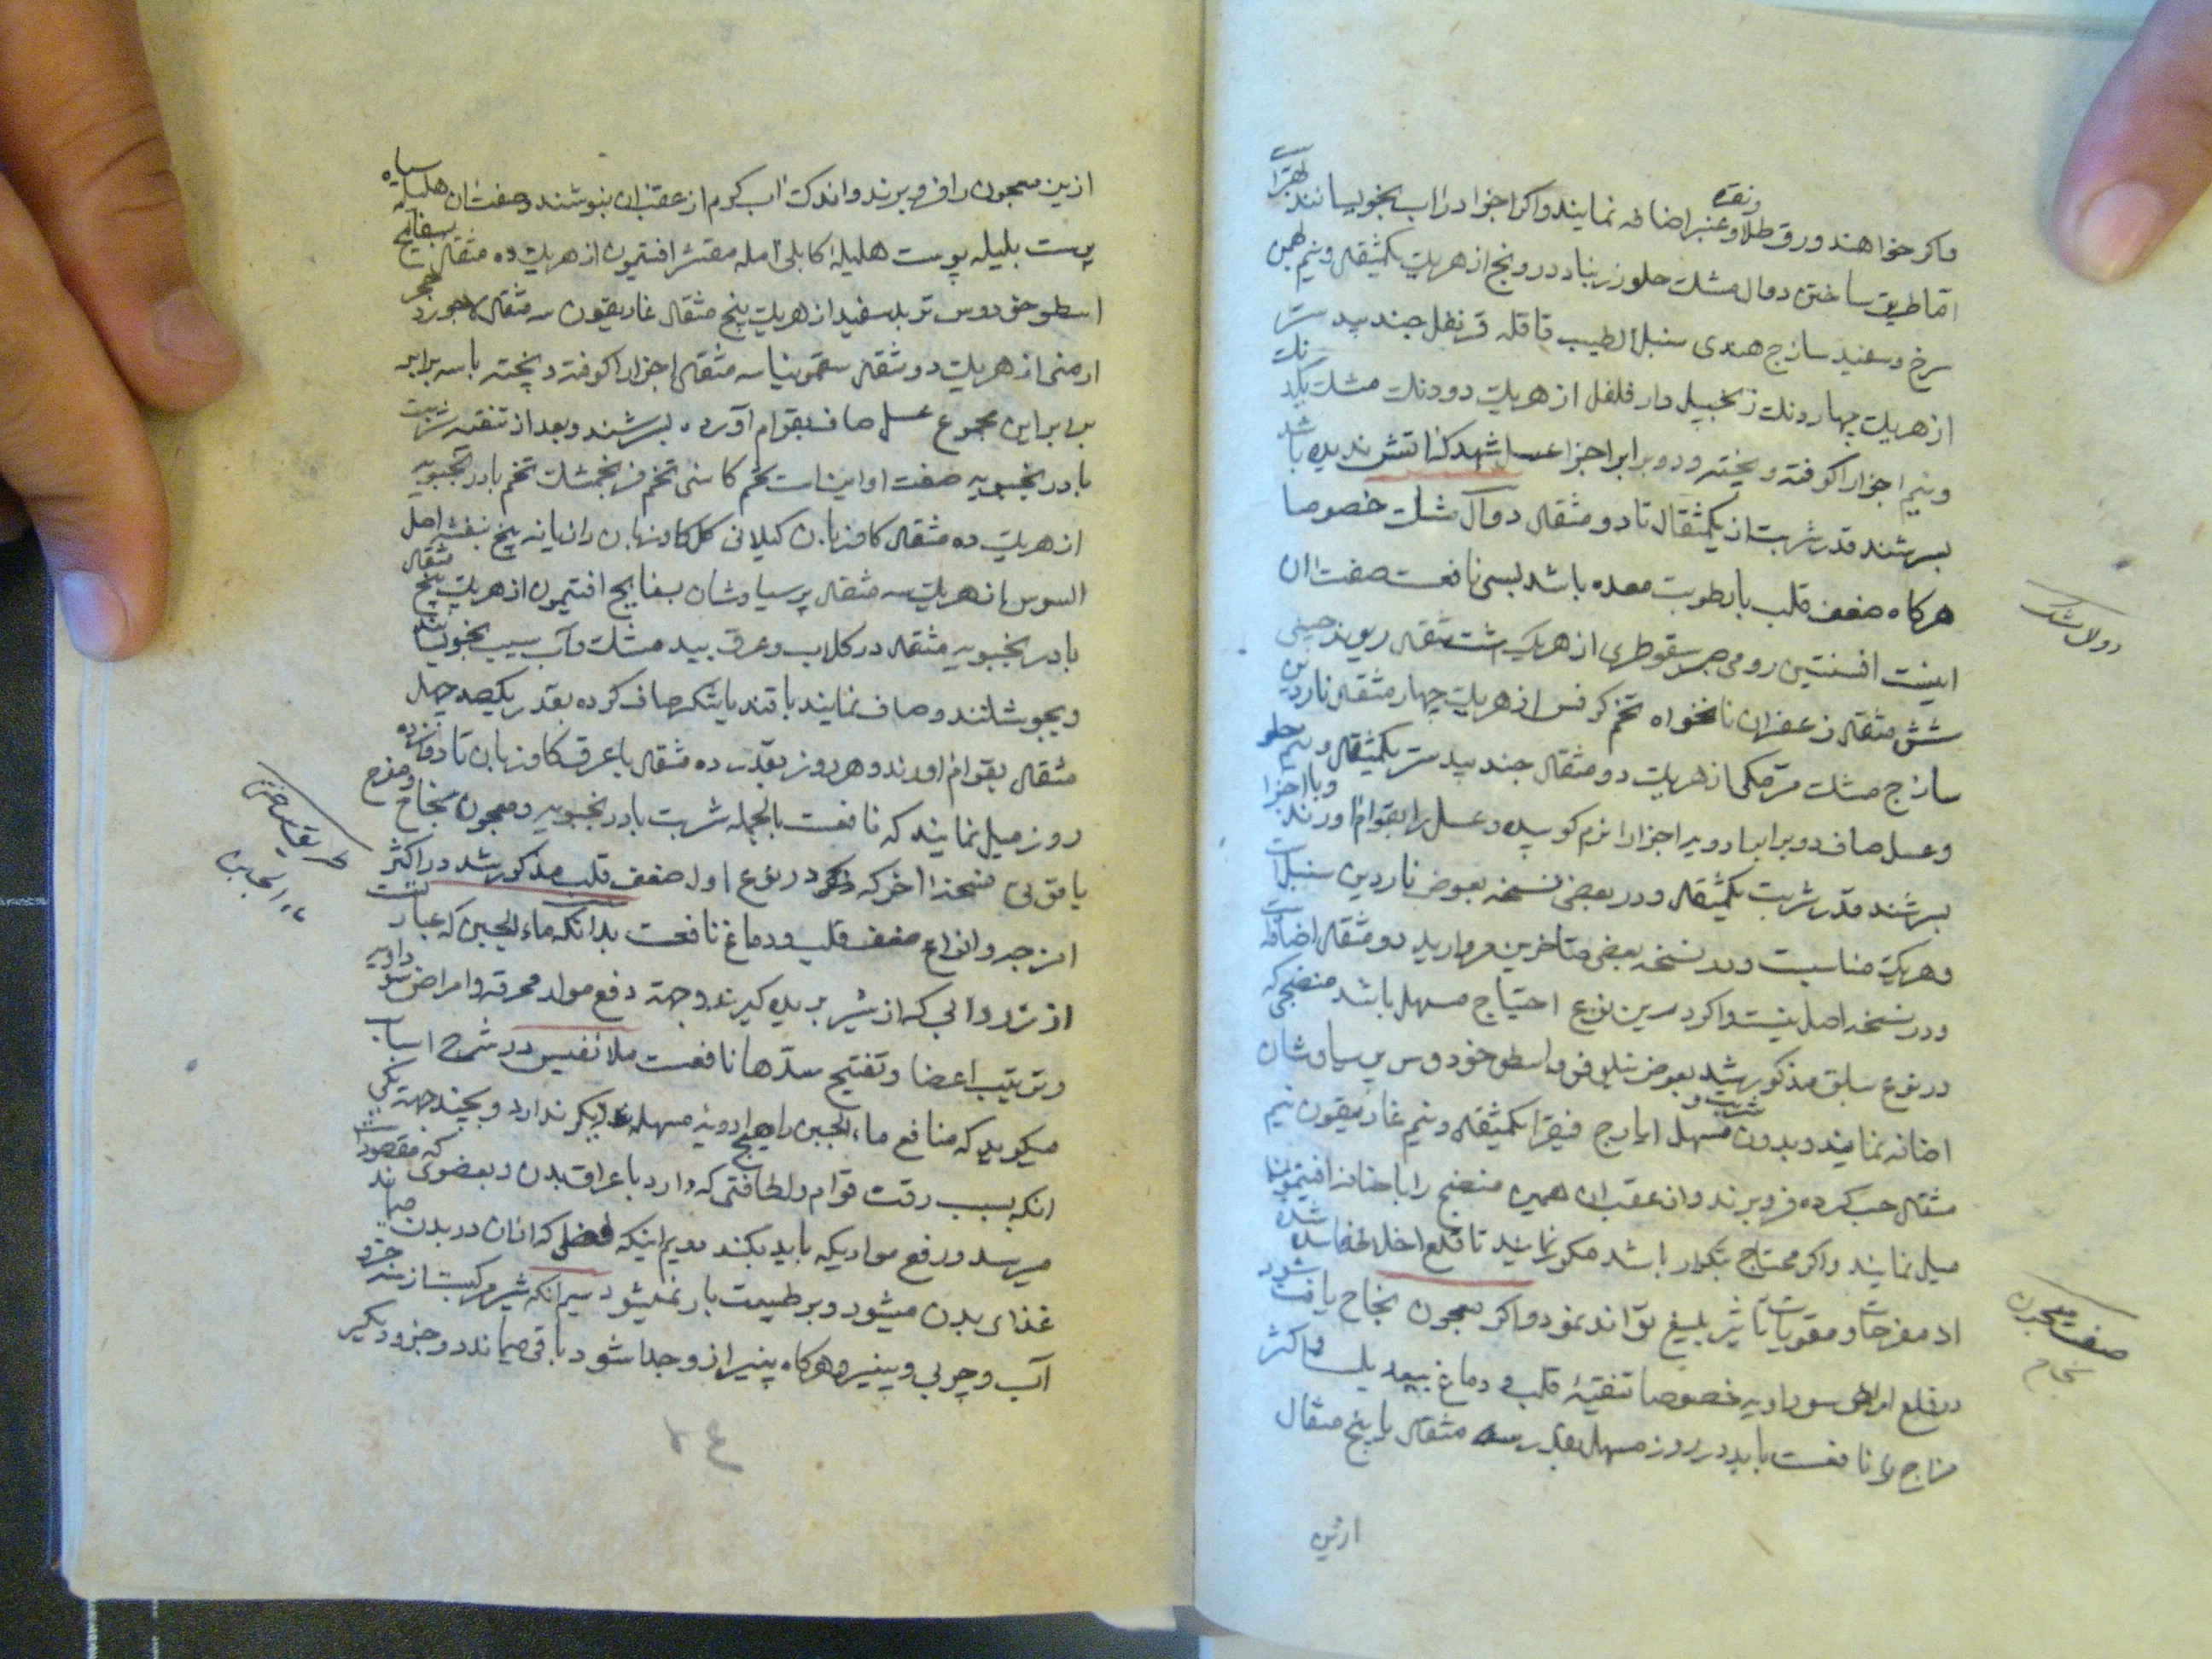 واکر خواهند ورق طلا و نقره و عنبر اضافه نمایند واکر اجزا در اب بخویسانند بهترا
اما طریق ساختن دوای مشک حلو زرنباد درونج از هریک یکمثقال و نیم بهمن
سرخ و سفید سازج هندی سنبل الطیب قاقله قرنفل جند بید ستر
از هریک چهار دنک زنجبیل دار فلفل از هریک دو دنک مشک یکد نک
و نیم اجزا را کوفته و بیخته و دو برابر اجزا عسل شهد که اتش ندیده باشد
بسرشند قدر شربت از یکمثقال تا دو مثقال دوای مشک خصوصا
هرکاه ضعف قلب با رطوبت معده باشد بسی نافعست صفت ان
اینست افسنتین رومی صبر سقوطری از هریک هشت مثقال ریوند چینی
شش مثقال زعفران نانخواه تخم کرفس از هریک چهار مثقال ناردین
سازج مشک مرمکی از هریک دو مثقال جند بید ستر یکمثقال و نیم
وعسل صاف دو برابر ادویه اجزا را نرم کوبیده وعسل را بقوام اورند و با اجزا
بسرشند قدر شربت یکمثقال و در بعضی نسخه بعوض ناردین سنبل است
وهریک مناسبست و در نسخه بعضی متاخرین مروارید دو مثقال اضافه است
و در نسخه اصل نیست واکر درین نوع احتیاج مسهل باشد منضجی که
در نوع سابق مذکور شد بعوض نیلوفر و اسطوخودوس پرسیاوشان
اضافه نمایند و بدون شربت و مسهل ایارج فیقرا یکمثقال و نیم غاریقون نیم
مثقال حب کرده فرو برند و از عقب ان همین منضج را با اضافه افتیمون
میل نمایند واکر محتاج بتکرار باشد مکرر نمایند تا قلع اخلاط فاسده شده
از مفرحات و مقویات تاثیر بلیغ تواند نمود واکر معجون نجاح یافت شود
در قلع امراض سوداویه خصوصا تنقیهٔ قلب و دماغ بیعدیل و اکثر
مزاج را نافعست باید در روز مسهل بقدر سه مثقال یا پنج مثقال
ازین
دوالمشک
صفت معجون
نجاح
ازین معجون را فرو برند و اندک اب کرم از عقب ان بنوشند و صفت ان هلیله سیاه
پوست بلیله پوست هلیله کابلی امله مقشر افتیمون از هریک ده مثقال بسفایج
اسطوخودوس تربد سفید از هریک پنج مثقال غاریقون سه مثقال لاجورد حجر
ارمنی از هریک دو مثقال سقمونیا سه مثقال اجزا را کوفته و بیخته با سه برابر
برابر این مجموع عسل صاف بقوام آورده بسرشند و بعد از تنقیه شربت
بادرنجبویه صفت او اینست تخم کاسنی تخم فرنجمشک تخم بادرنجبویه
از هریک ده مثقال کاوزبان کیلانی کل کاوزبان رازیانه بیخ بنفشه اصل
السوس از هریک سه مثقال پرسیاوشان بسفایج افتیمون از هریک پنج مثقال
بادرنجبویه مثقال در کلاب وعرق بید مشک و آب سیب بخویسانند
و بجوشانند و صاف نمایند با قند یا شکر صاف کرده بقدر یکصد چهل
مثقال بقوام اورند و هر روز بقدر ده مثقال با عرق کاوزبان تا دوازده
روز میل نمایند که نافعست بالجمله شربت بادرنجبویه و معجون نجاح و مفرح
یاقوتی نسخه آخر که ذکر در نوع اول ضعف قلب مذکور شد در اکثر
امزجه و انواع ضعف قلب و دماغ نافعست بدانکه ماء الجبن که عبارتست
از زردابی که از شیر بریده کیرند وجهة دفع مواد محرقه و امراض سوداویه
و ترتیب اعضا و تفتیح سدّها نافعست ملا نفیس در شرح اسباب
میکوید که منافع ماء الجبن را هیچ ادویهٔ مسهله دیکر ندارد و بچند جهة یکی
انکه بسبب رقت قوام و لطافتی که دارد باعراق بدن و بعضوی که مقصود است
میرسد و رفع موادیکه باید بکند دویم اینکه فضلی که از ان در بدن میماند
غذای بدن میشود و بر طبیعت بار نمیشود سیم انکه شیر مرکبست از سه جزو
آب و چربی و پنیر و هرکاه پنیر ازو جدا شود باقی میماند دو جزو دیکر
طریق ساختن
ماء الجبن